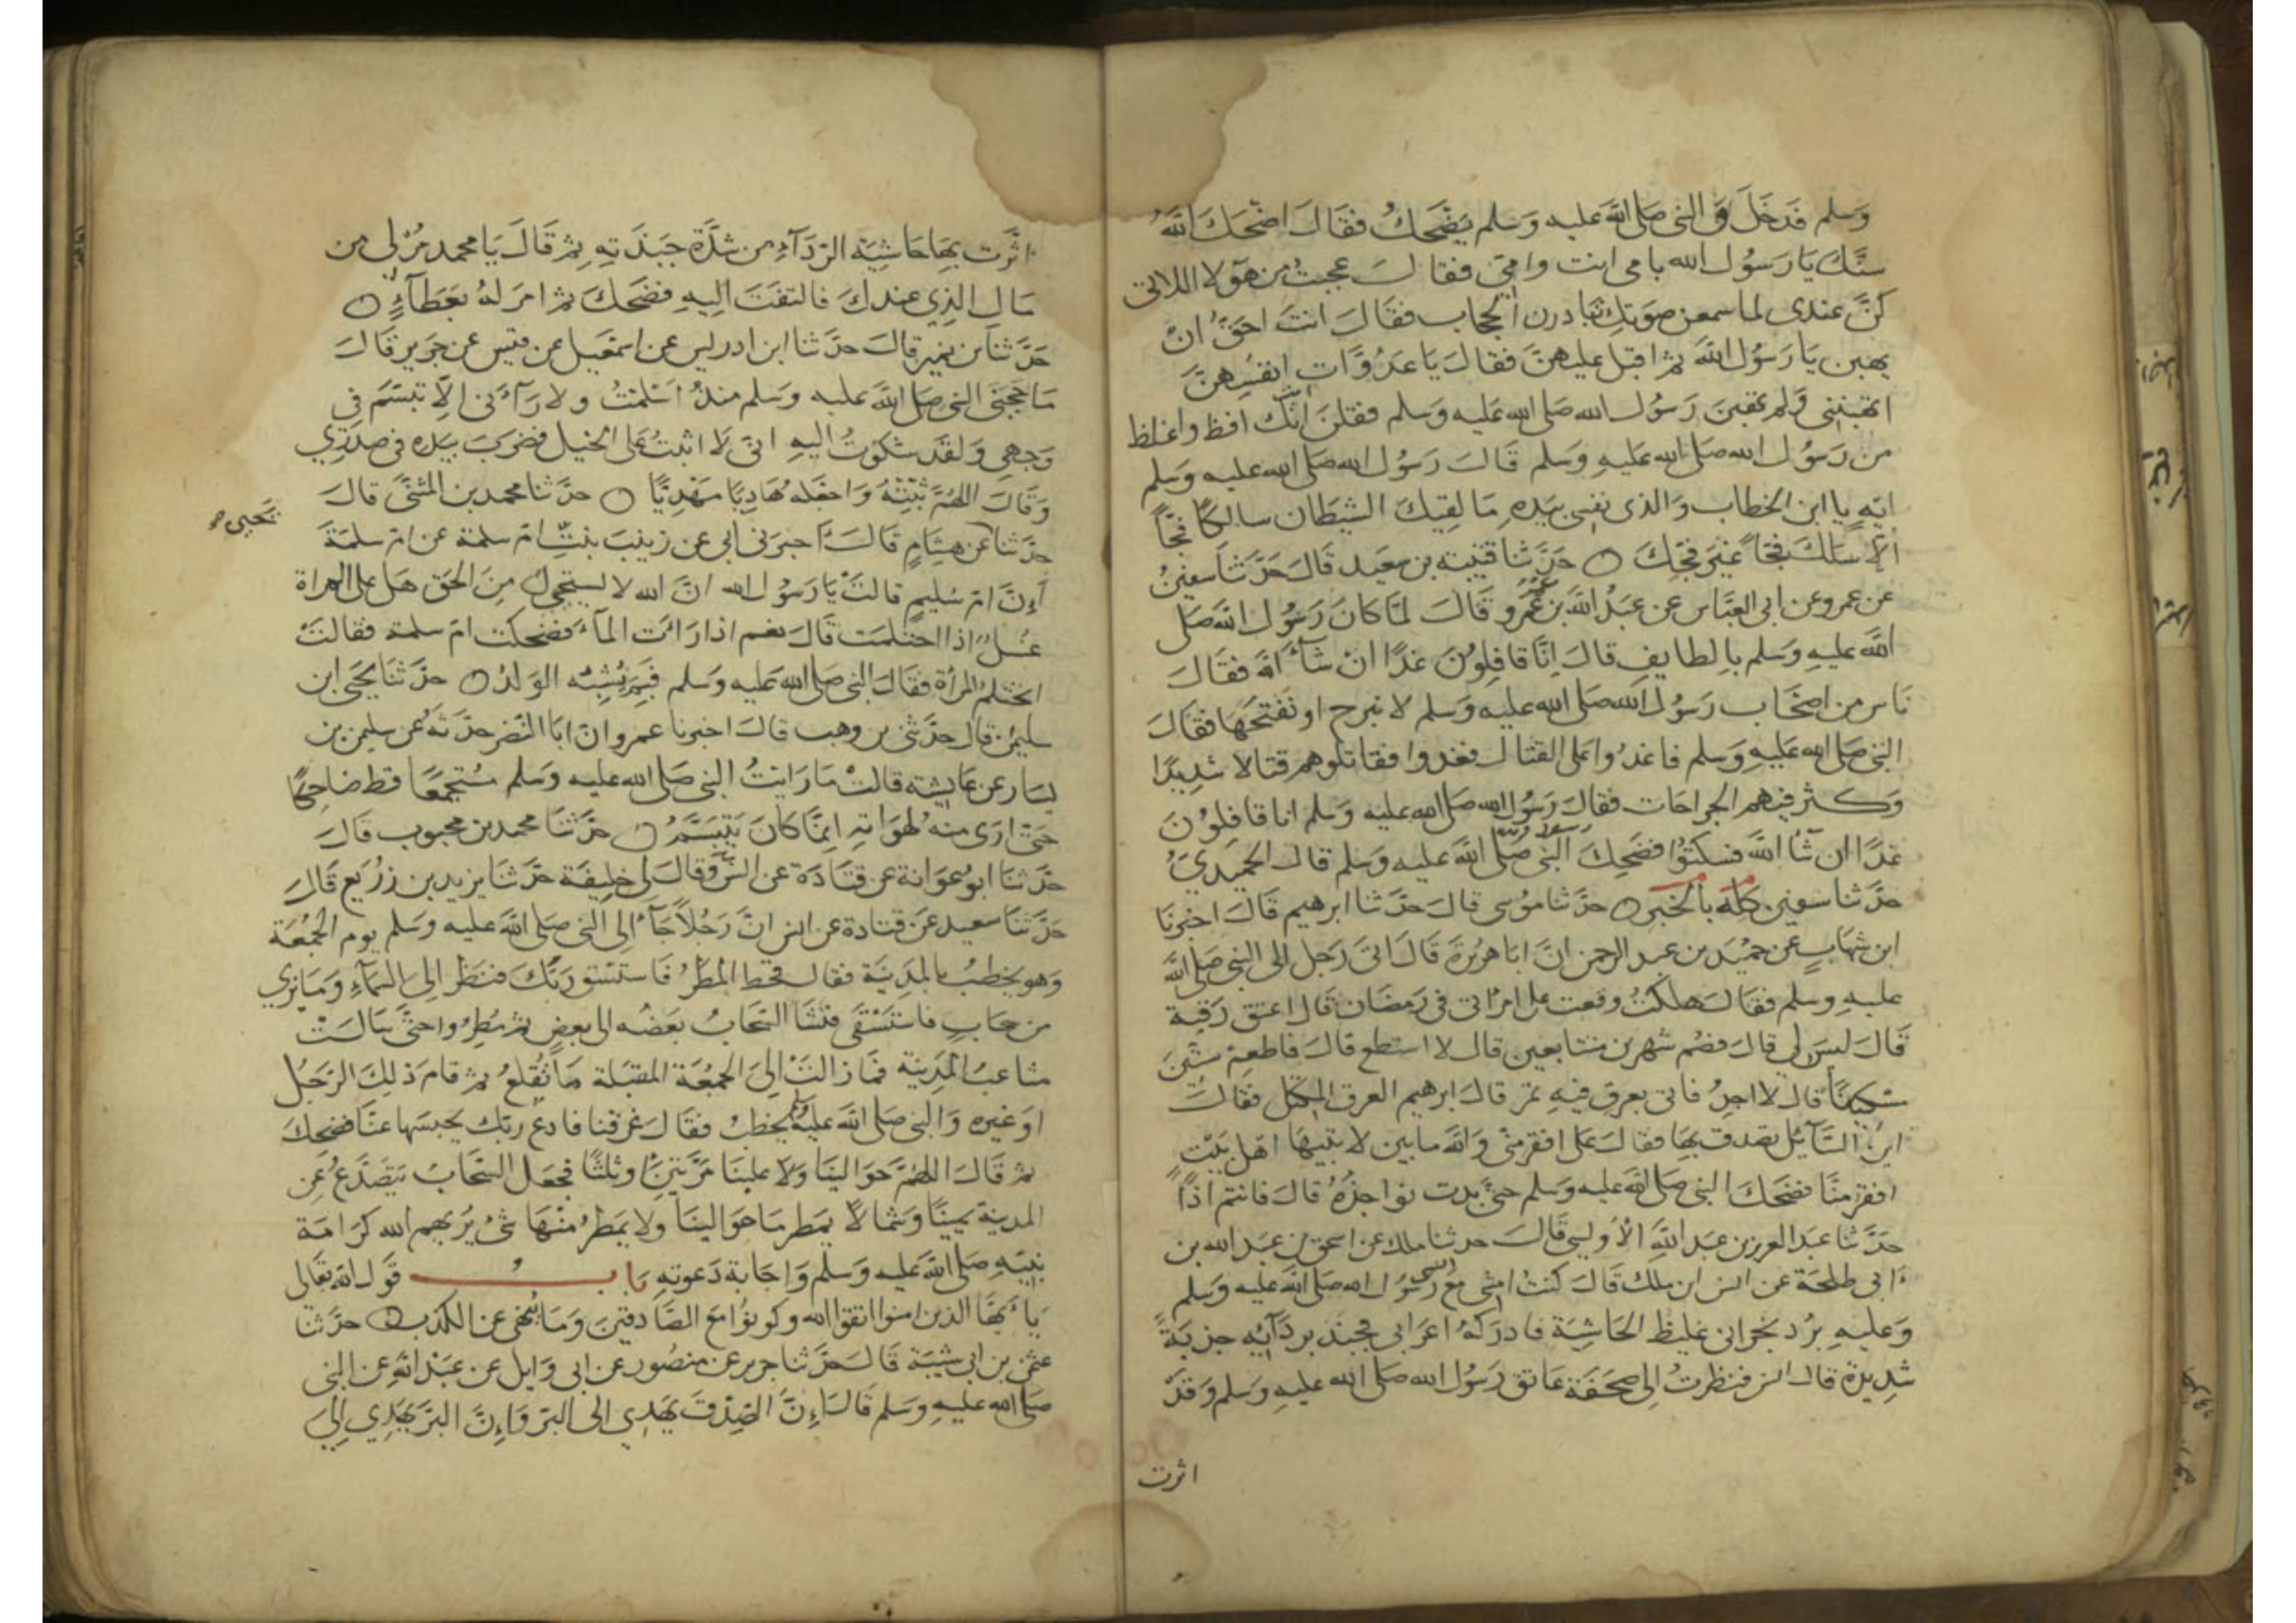 وسلم فدخل والنبي صلى الله عليه وسلم يضحك فقال اضحك الله
سنك يا رسول الله بابي انت وامي فقال عجبت من هولا اللاتي
كن عندي لما سمعن صوتك تبادرن الحجاب فقال انت احق ان
يهبن يا رسول الله ثم اقبل عليهن فقال يا عدوات انفسهن
اتهبنني ولم تهبن رسول الله صلى الله عليه وسلم فقلن انك افظ واغلظ
من رسول الله صلى الله عليه وسلم قال رسول الله صلى الله عليه وسلم
ايه يا ابن الخطاب والذي نفسي بيده ما لقيك الشيطان سالكا فجا
الا سلك فجا غير فجك ○ حدثنا قتيبة بن سعيد قال حدثنا سفين
عن عمرو عن ابي العباس عن عبد الله بن عمرو قال لما كان رسول الله صلى
الله عليه وسلم بالطايف قال انا قافلون غدا ان شاء الله فقال
ناس من اصحاب رسول الله صلى الله عليه وسلم لا نبرح او نفتحها فقال
النبي صلى الله عليه وسلم فاغدوا على القتال فغدوا فقاتلوهم قتالا شديدا
وكثر فيهم الجراحات فقال رسول الله صلى الله عليه وسلم انا قافلون
غدا ان شا الله فسكتوا فضحك النبي صلى الله عليه وسلم قال الحميدي
حدثنا سفين كله بالخبر ○ حدثنا موسى قال حدثنا ابرهيم قال اخبرنا
ابن شهاب عن حميد بن عبد الرحمن ان ابا هريرة قال اتى رجل الى النبي صلى الله
عليه وسلم فقال هلكت وقعت على امراتي في رمضان قال اعتق رقبة
قال ليس لي قال فصم شهرين متتابعين قال لا استطع قال فاطعم ستين
مسكينا قال لا اجد فاتي بعرق فيه تمر قال ابرهيم العرق المكتل فقال
اين السائل تصدق بها فقال على افقر مني والله ما بين لابتيها اهل بيت
افقر منا فضحك النبي صلى الله عليه وسلم حتى بدت نواجذه قال فانتم اذا
حدثنا عبد العزيز بن عبد الله الاويسي قال حدثنا ملك عن اسحق بن عبد الله بن
ابي طلحة عن انس ابن ملك قال كنت امشي مع رسول الله صلى الله عليه وسلم
وعليه برد نجراني غليظ الحاشية فادركه اعرابي فجبذ بردائه جذبة
شديدة قال انس فنظرت الى صحفة عاتق رسول الله صلى الله عليه وسلم وقد
اثرت
اثرت بها حاشية الرداء من شدة جبذته ثم قال يا محمد مر لي من
مال الذي عندك فالتفت اليه فضحك ثم امر له بعطاء ○
حدثنا بن نمير قال حدثنا ابن ادريس عن اسمعيل عن قيس عن جرير قال
ما حجبني النبي صلى الله عليه وسلم منذ اسلمت ولا رآني الا تبسم في
وجهي ولقد شكوت اليه اني لا اثبت على الخيل فضرب بيده في صدري
وقال اللهم ثبته واجعله هاديا مهديا ○ حدثنا محمد بن المثنى قال
يحيى
حدثنا عن هشام قال اخبرني ابي عن زينب بنت ام سلمة عن ام سلمة
ان ام سليم قالت يا رسول الله ان الله لا يستحيي من الحق هل على المراة
غسل اذا احتلمت قال نعم اذا رات الماء فضحكت ام سلمة فقالت
اتحتلم المرأة فقال النبي صلى الله عليه وسلم فبم يشبه الولد ○ حدثنا يحيى ابن
سليمن قال حدثني بن وهب قال اخبرنا عمرو ان ابا النضر حدثه عن سليمن بن
يسار عن عايشة قالت ما رايت النبي صلى الله عليه وسلم مستجمعا قط ضاحكا
حتى ارى منه لهواته انما كان يتبسم ○ حدثنا محمد بن محبوب قال
حدثنا ابو عوانة عن قتادة عن انس وقال لي خليفة حدثنا يزيد بن زريع قال
حدثنا سعيد عن قتادة عن انس ان رجلا جاء الى النبي صلى الله عليه وسلم يوم الجمعة
وهو يخطب بالمدينة فقال قحط المطر فاستسق ربك فنظر الى السماء وما نري
من سحاب فاستسقى فنشا السحاب بعضه الى بعض ثم مطروا حتى سالت
مثاعب المدينة فما زالت الى الجمعة المقبلة ما تقلع ثم قام ذلك الرجل
او غيره والنبي صلى الله عليه وسلم يخطب فقال غرقنا فادع ربك يحبسها عنا فضحك
ثم قال اللهم حوالينا ولا علينا مرتين او ثلثا فجعل السحاب يتصدع عن
المدينة يمينا وشمالا يمطر ما حوالينا ولا يمطر منها شي يريهم الله كرامة
نبيه صلى الله عليه وسلم واجابة دعوته باب قول الله تعالى
يا ايها الذين امنوا اتقوا الله وكونوا مع الصادقين وما ينهى عن الكذب ○ حدثنا
عثمن بن ابي شيبة قال حدثنا جرير عن منصور عن ابي وايل عن عبد الله عن النبي
صلى الله عليه وسلم قال ان الصدق يهدي الى البر وان البر يهدي الى